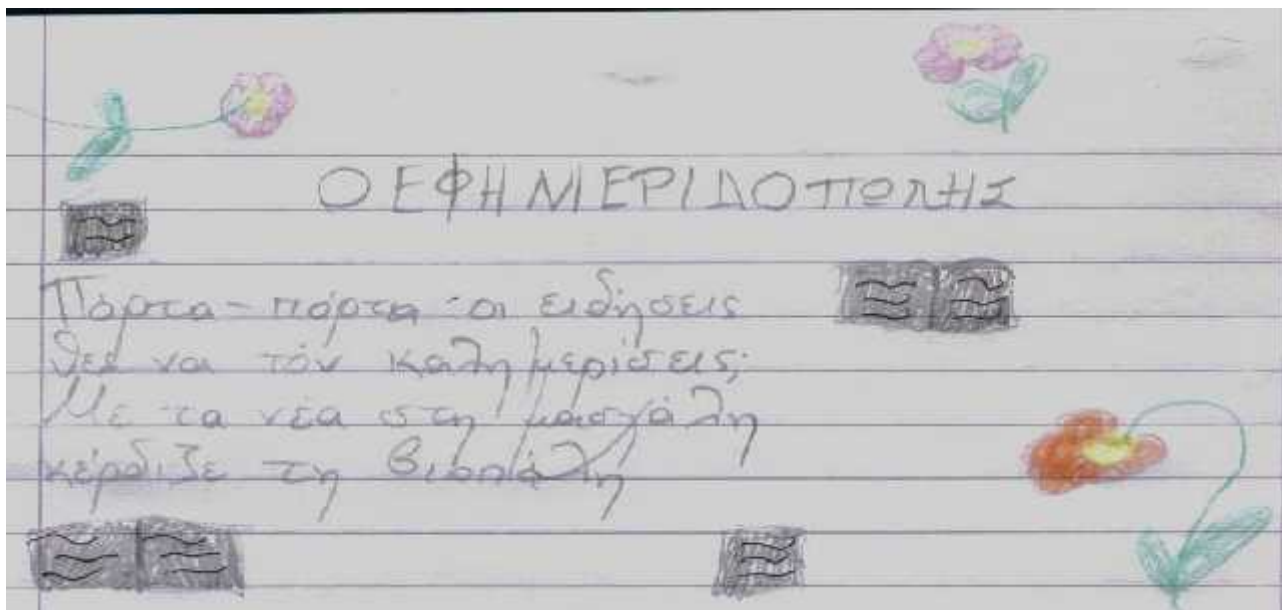 Ο ΕΦΗΜΕΡΙΔΟΠΩΛΗΣ
Πόρτα-πόρτα οι ειδήσεις
θες να τόν καλημερίσεις;
Με τα νέα στη μασχάλη
κέρδιζε τη βιοπάλη